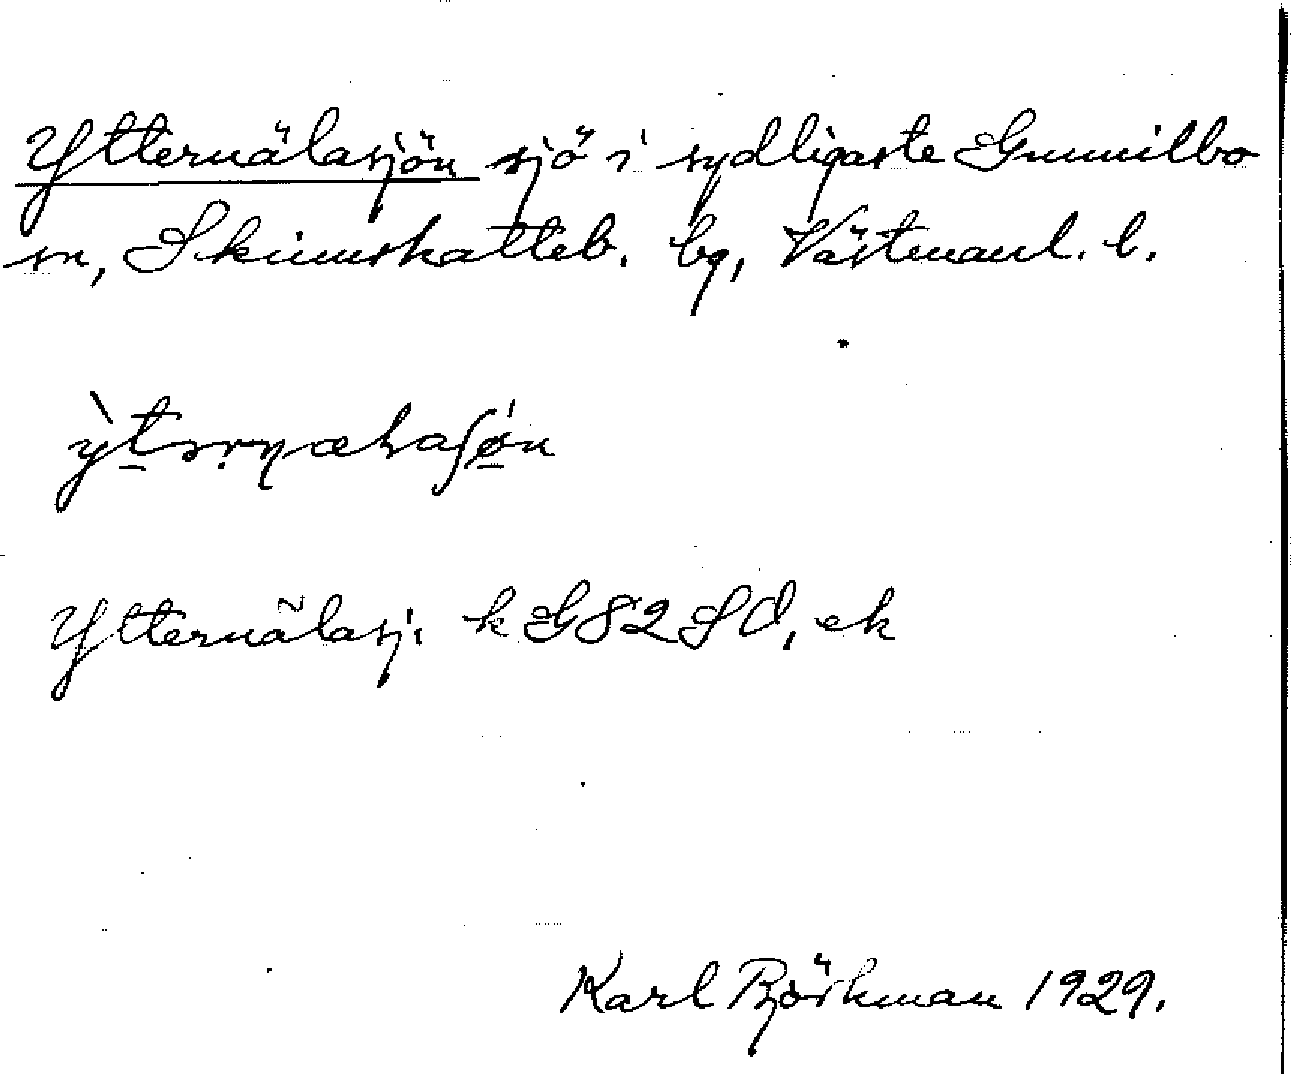 Ytternälasjön sjö i sydligaste Gunnilbo
sn, Skinnskatteb. bg, Västmanl. l.
Ytternälasj. k G82SO, ek
Karl Björkman 1929.